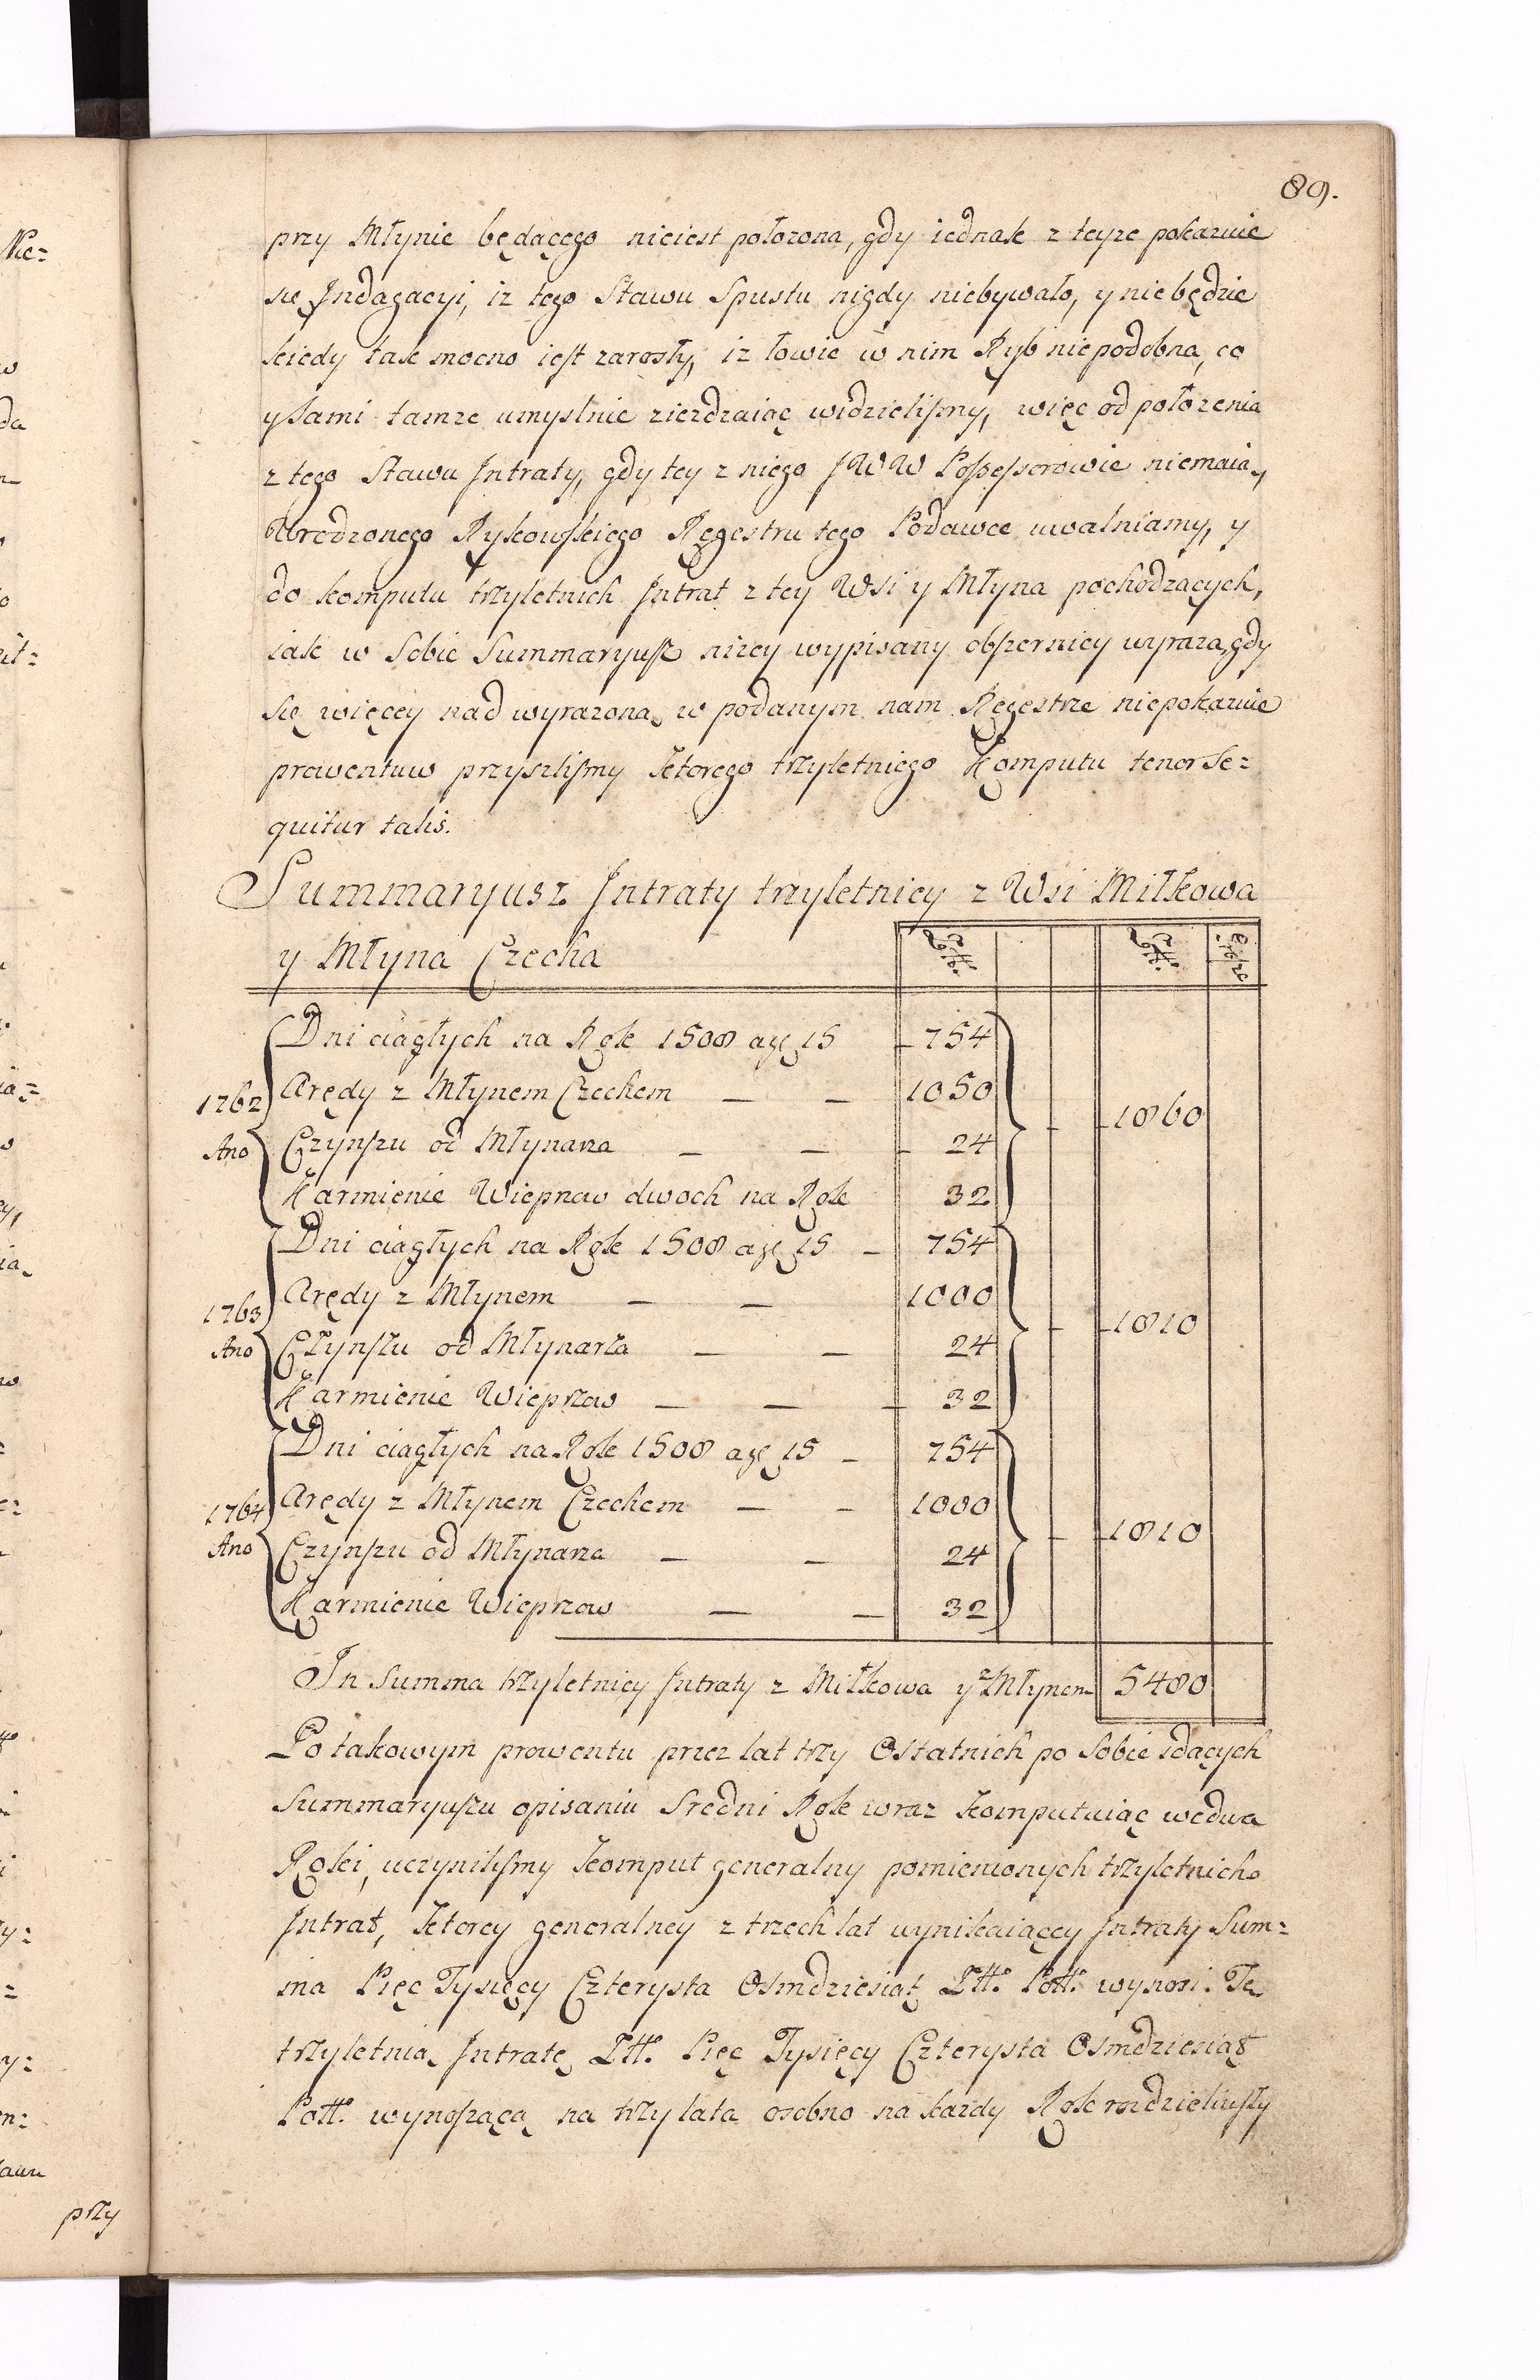 89.
przy Młynie będącego nieiest położona, gdy iednak z teyze pokazuie
się Jndagacyi, iz tego Stawu Spustu nigdy niebywało, y nie będzie
kiedy tak mocno iest zarosły, iz łowic w nim Ryb niepodobna, co
y Sami tamze umyslnie ziezdzaiąc widzieliſmy, więc od położenia
z tego Stawu Jntraty, gdy tey z niego JWW Poſſeſsorowie niemaią,
Urodzonego Rykowſkiego Regestru tego Podawce uwalniamy, y
do komputu trzyletnich Jntrat z tey Wsi y Młyna pochodzących,
iak w Sobie Summaryuſz nizey wypisany obſzerniey wyraza, gdy
się więcey nad wyrazoną w podanym nam Regestrze niepokazuie
prowentuw przyszliſmy ktorego trzyletniego Komputu tenor Se=
quitur talis.
Summaryusz Jntraty trzyletniey z Wsi Miłkowa
y Młyna Czecha
Dni ciągłych na Rok 1508 a gę 15 754
1762 Arędy z Młynem Czechem 1050
Ano Czynſzu od Młynarza 24 1860
Karmienie Wieprzow dwoch na Rok 32
Dni ciągłych na Rok 1508 a gę 15 754
1763 Arędy z Młynem 1000
Ano Czynſzu od Młynarza 24 1810
Karmienie Wieprzow 32
Dni ciągłych na Rok 1508 a gę 15 754
1764 Arędy z Młynem Czechem 1000
Ano Czynſzu od Młynarza 24 1810
Karmienie Wieprzow 32
In Summa trzyletniey Jntraty z Miłkowa y z Młynem 5480
Po takowym prowentu przez lat trzy Ostatnich po Sobie idących
Summaryuſzu opisaniu Sredni Rok wraz komputuiąc wedwa
Roki, uczyniliſmy komput generalny pomienionych trzyletnich
Jntrat, ktorey generalney z trzech lat wynikaiącey Jntraty Sum=
ma Pięc Tysięcy Czterysta Osmdziesiąt Złł. Poll. wynosi. Tę
trzyletnią Jntratę Złł. Pięc Tysięcy Czterysta Osmdziesiąt
Poll. wynoſzącą na trzy lata osobno na kazdy Rok rozdzieliwſzy
przy